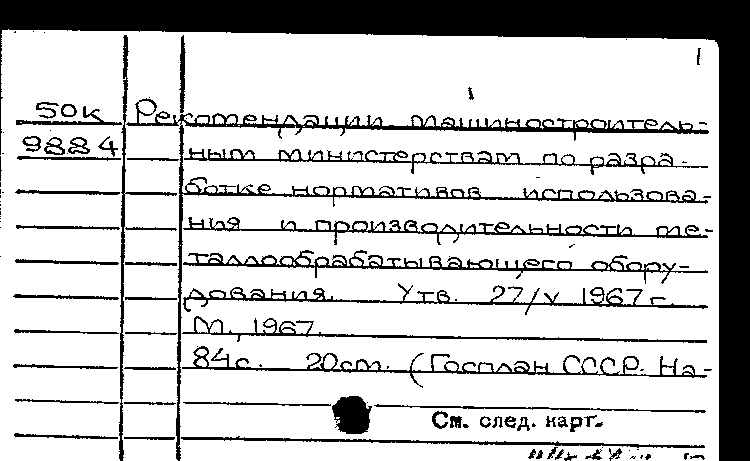 1
50к Рекомендации машиностроитель-
9884 ным министерствам по разра-
ботке нормативов использова-
ния и производительности ме-
таллообрабатывающего обору-
дования. Утв. 27/V 1967 г.
М., 1967.
84 с. 20 см. (Госплан СССР. На-
См. след. карт.